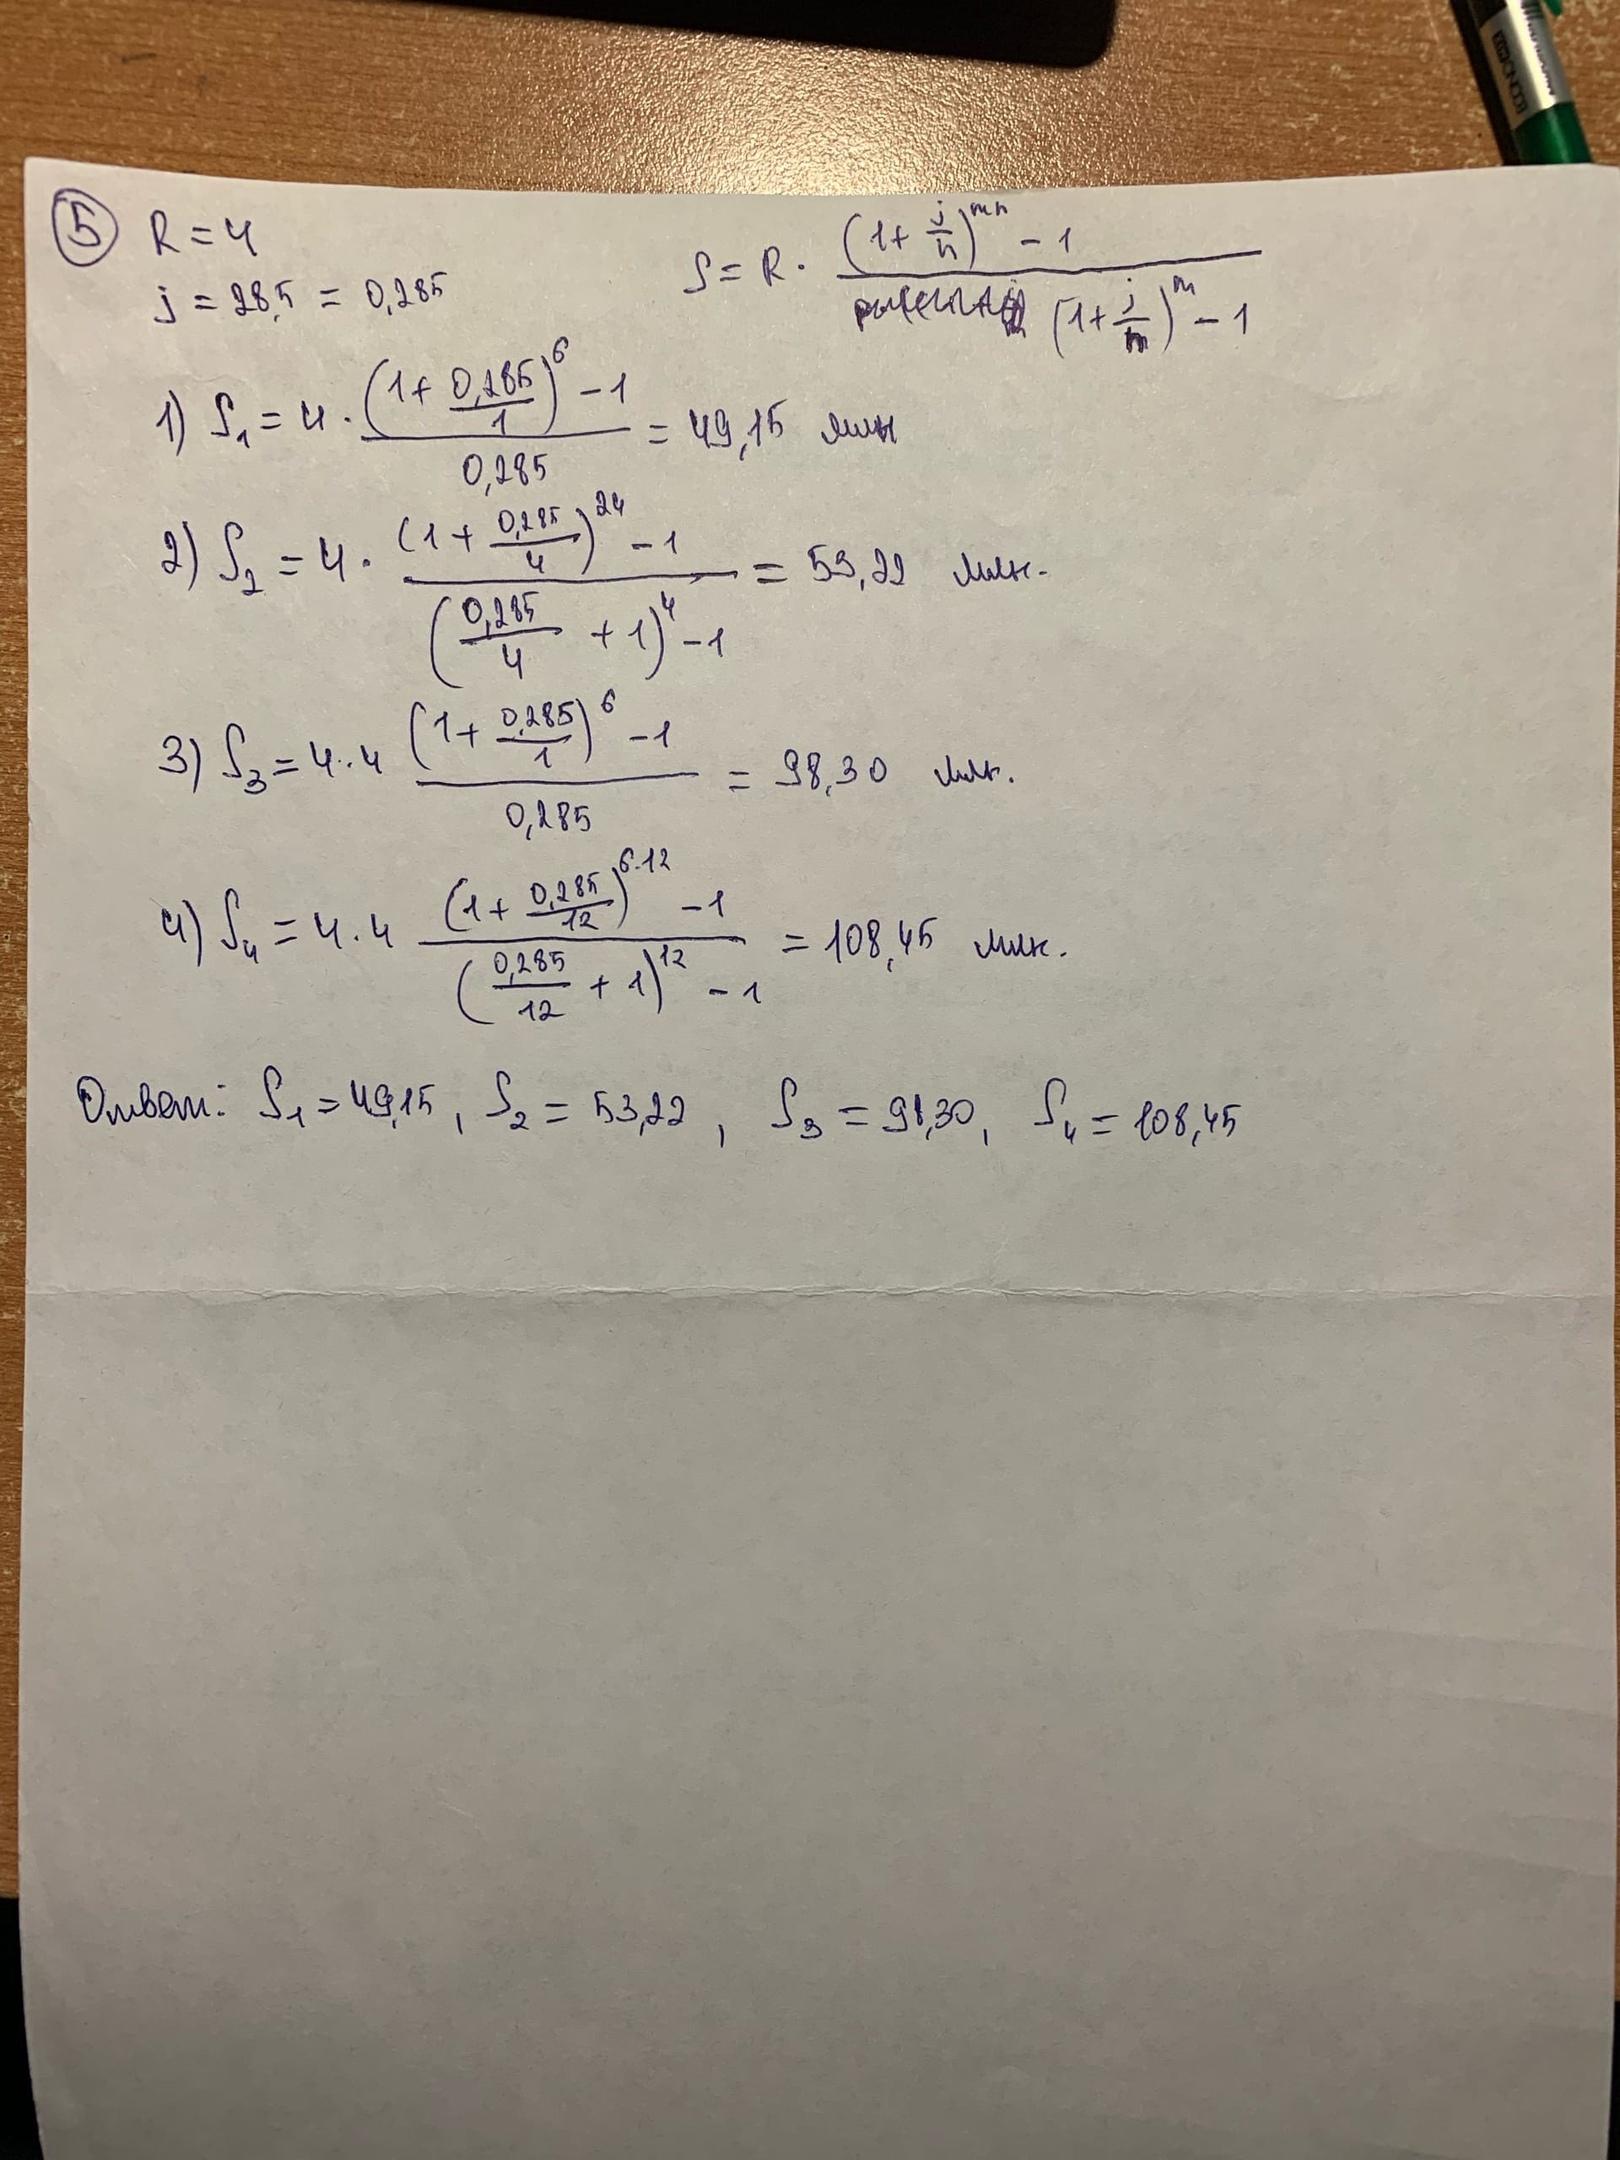 5 R = 4
j = 28,5 = 0,285
S = R · ((1 + j/n)^mn − 1) / ((1 + j/m)^m − 1)
1) S₁ = 4 · ((1 + 0,285/1)^6 − 1) / 0,285 = 49,15 млн
2) S₂ = 4 · ((1 + 0,285/4)^24 − 1) / ((0,285/4 + 1)^4 − 1) = 53,22 млн.
3) S₃ = 4 · 4 ((1 + 0,285/1)^6 − 1) / 0,285 = 98,30 млн.
4) S₄ = 4 · 4 ((1 + 0,285/12)^6·12 − 1) / ((0,285/12 + 1)^12 − 1) = 108,45 млн.
Ответ: S₁ = 49,15, S₂ = 53,22, S₃ = 98,30, S₄ = 108,45